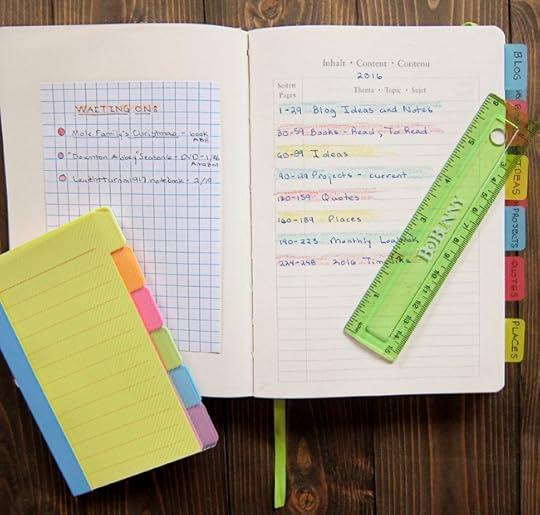 WAITING ON:
Mole Family's Christmas - book
ABE
"Downton Abbey" Season 6 - DVD - 1/26
Amazon
Leuchtturm1917 notebook - 2/19
Inhalt • Content • Contenu
2016
Seiten
Pages
Thema • Topic • Sujet
1-29 Blog Ideas and Notes
30-59 Books - Read, To Read
60-89 Ideas
90-129 Projects - current
130-159 Quotes
160-189 Places
190-223 Monthly Logbook
224-248 2016
BOBUNNY
BLOG
IDEAS
PROJECTS
QUOTES
PLACES